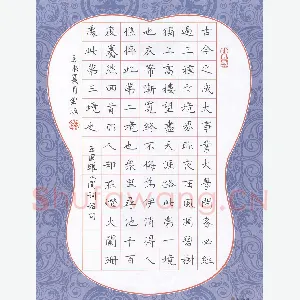 古今之成大事業大學問者必經
過三種之境界昨夜西風凋碧樹
獨上高樓望盡天涯路此第一境
也衣帶漸寬終不悔為伊消得人
憔悴此第二境也眾里尋他千百
度驀然回首那人却在燈火闌珊
處此第三境也
王國維人間詞話句
夏月
Shufawang.cn